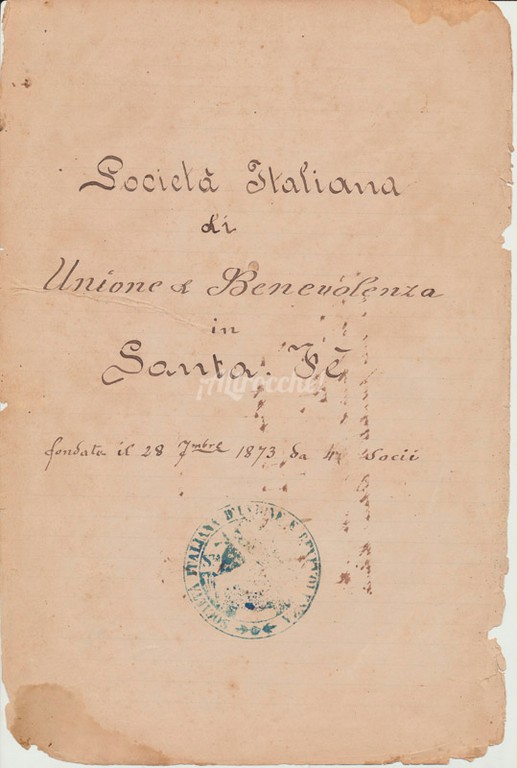 Società Italiana
di
Unione & Benevolenza
in
Santa Fè
¡Mirocché!
fondata il 28 7mbre 1873 da Soci
SOCIETA ITALIANA D'UNIONE E BENEVOLENZA